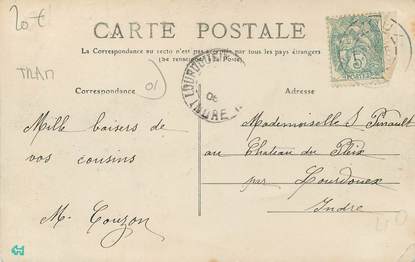 20 €
CARTE POSTALE
La Correspondance au recto n'est pas acceptée par tous les pays étrangers
(Se renseigner à la Poste).
TRAM
01
Correspondance
Adresse
LOURDOUEIX
06
INDRE
5c
POSTES
Mille baisers de
vos cousins
M. Couzon
Mademoiselle S Pinault
au Chateau du Plaix
par Lourdoueix
Indre
40